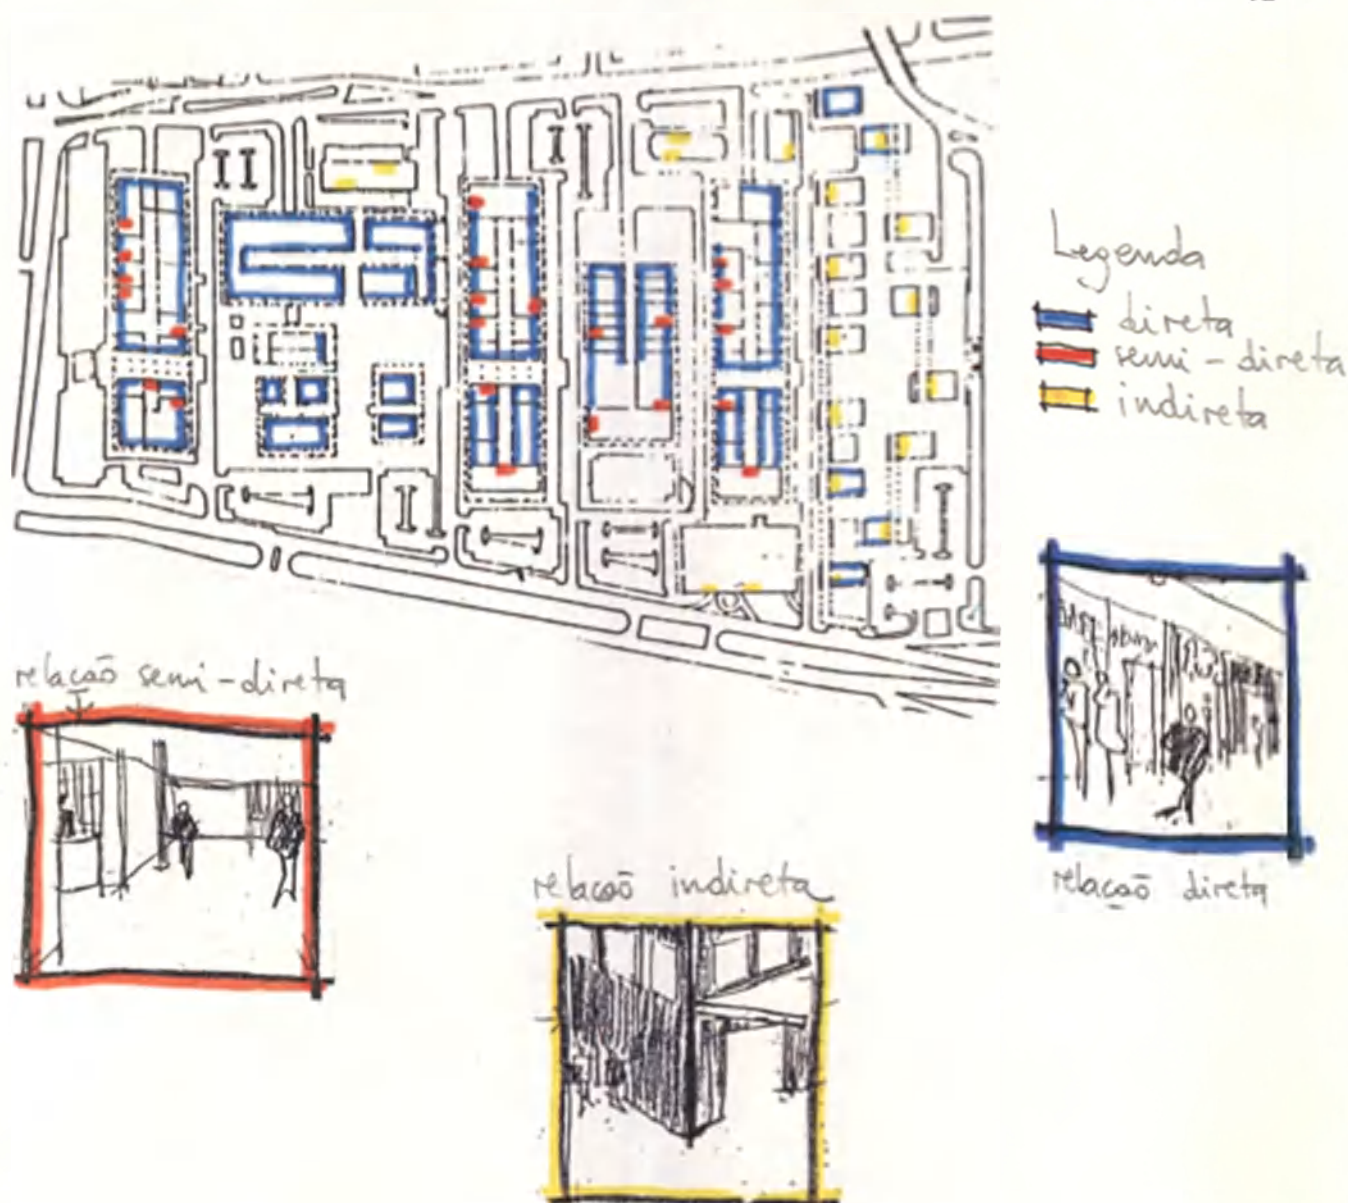 Legenda
direta
semi-direta
indireta
relação semi-direta
relação indireta
relação direta